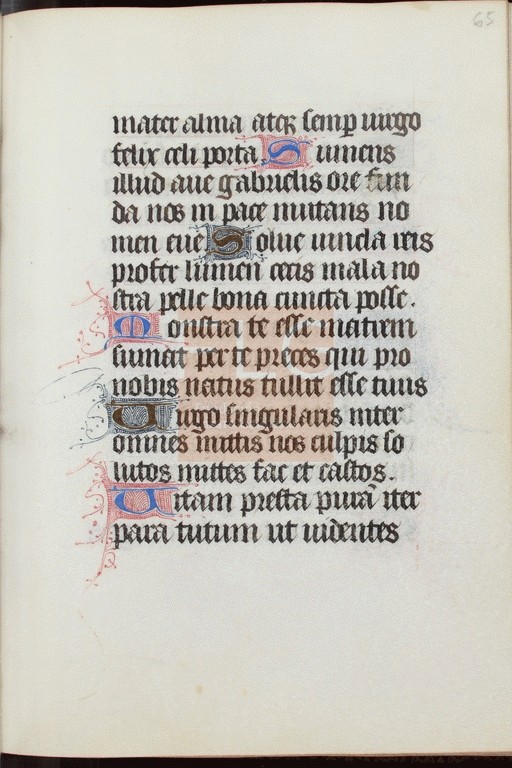 65
mater alma atq̃ semp uirgo
felix celi porta. Sumens
illud aue gabrielis ore fun
da nos in pace mutans no
men eue. Solue uincla reis
profer lumen cecis mala no
stra pelle bona cuncta posse.
Monstra te esse matrem
sumat per te preces qui pro
nobis natus tulit esse tuus
Uirgo singularis inter
omnes mittis nos culpis so
lutos mittes fac et castos.
Uitam presta purã iter
para tutum ut uidentes